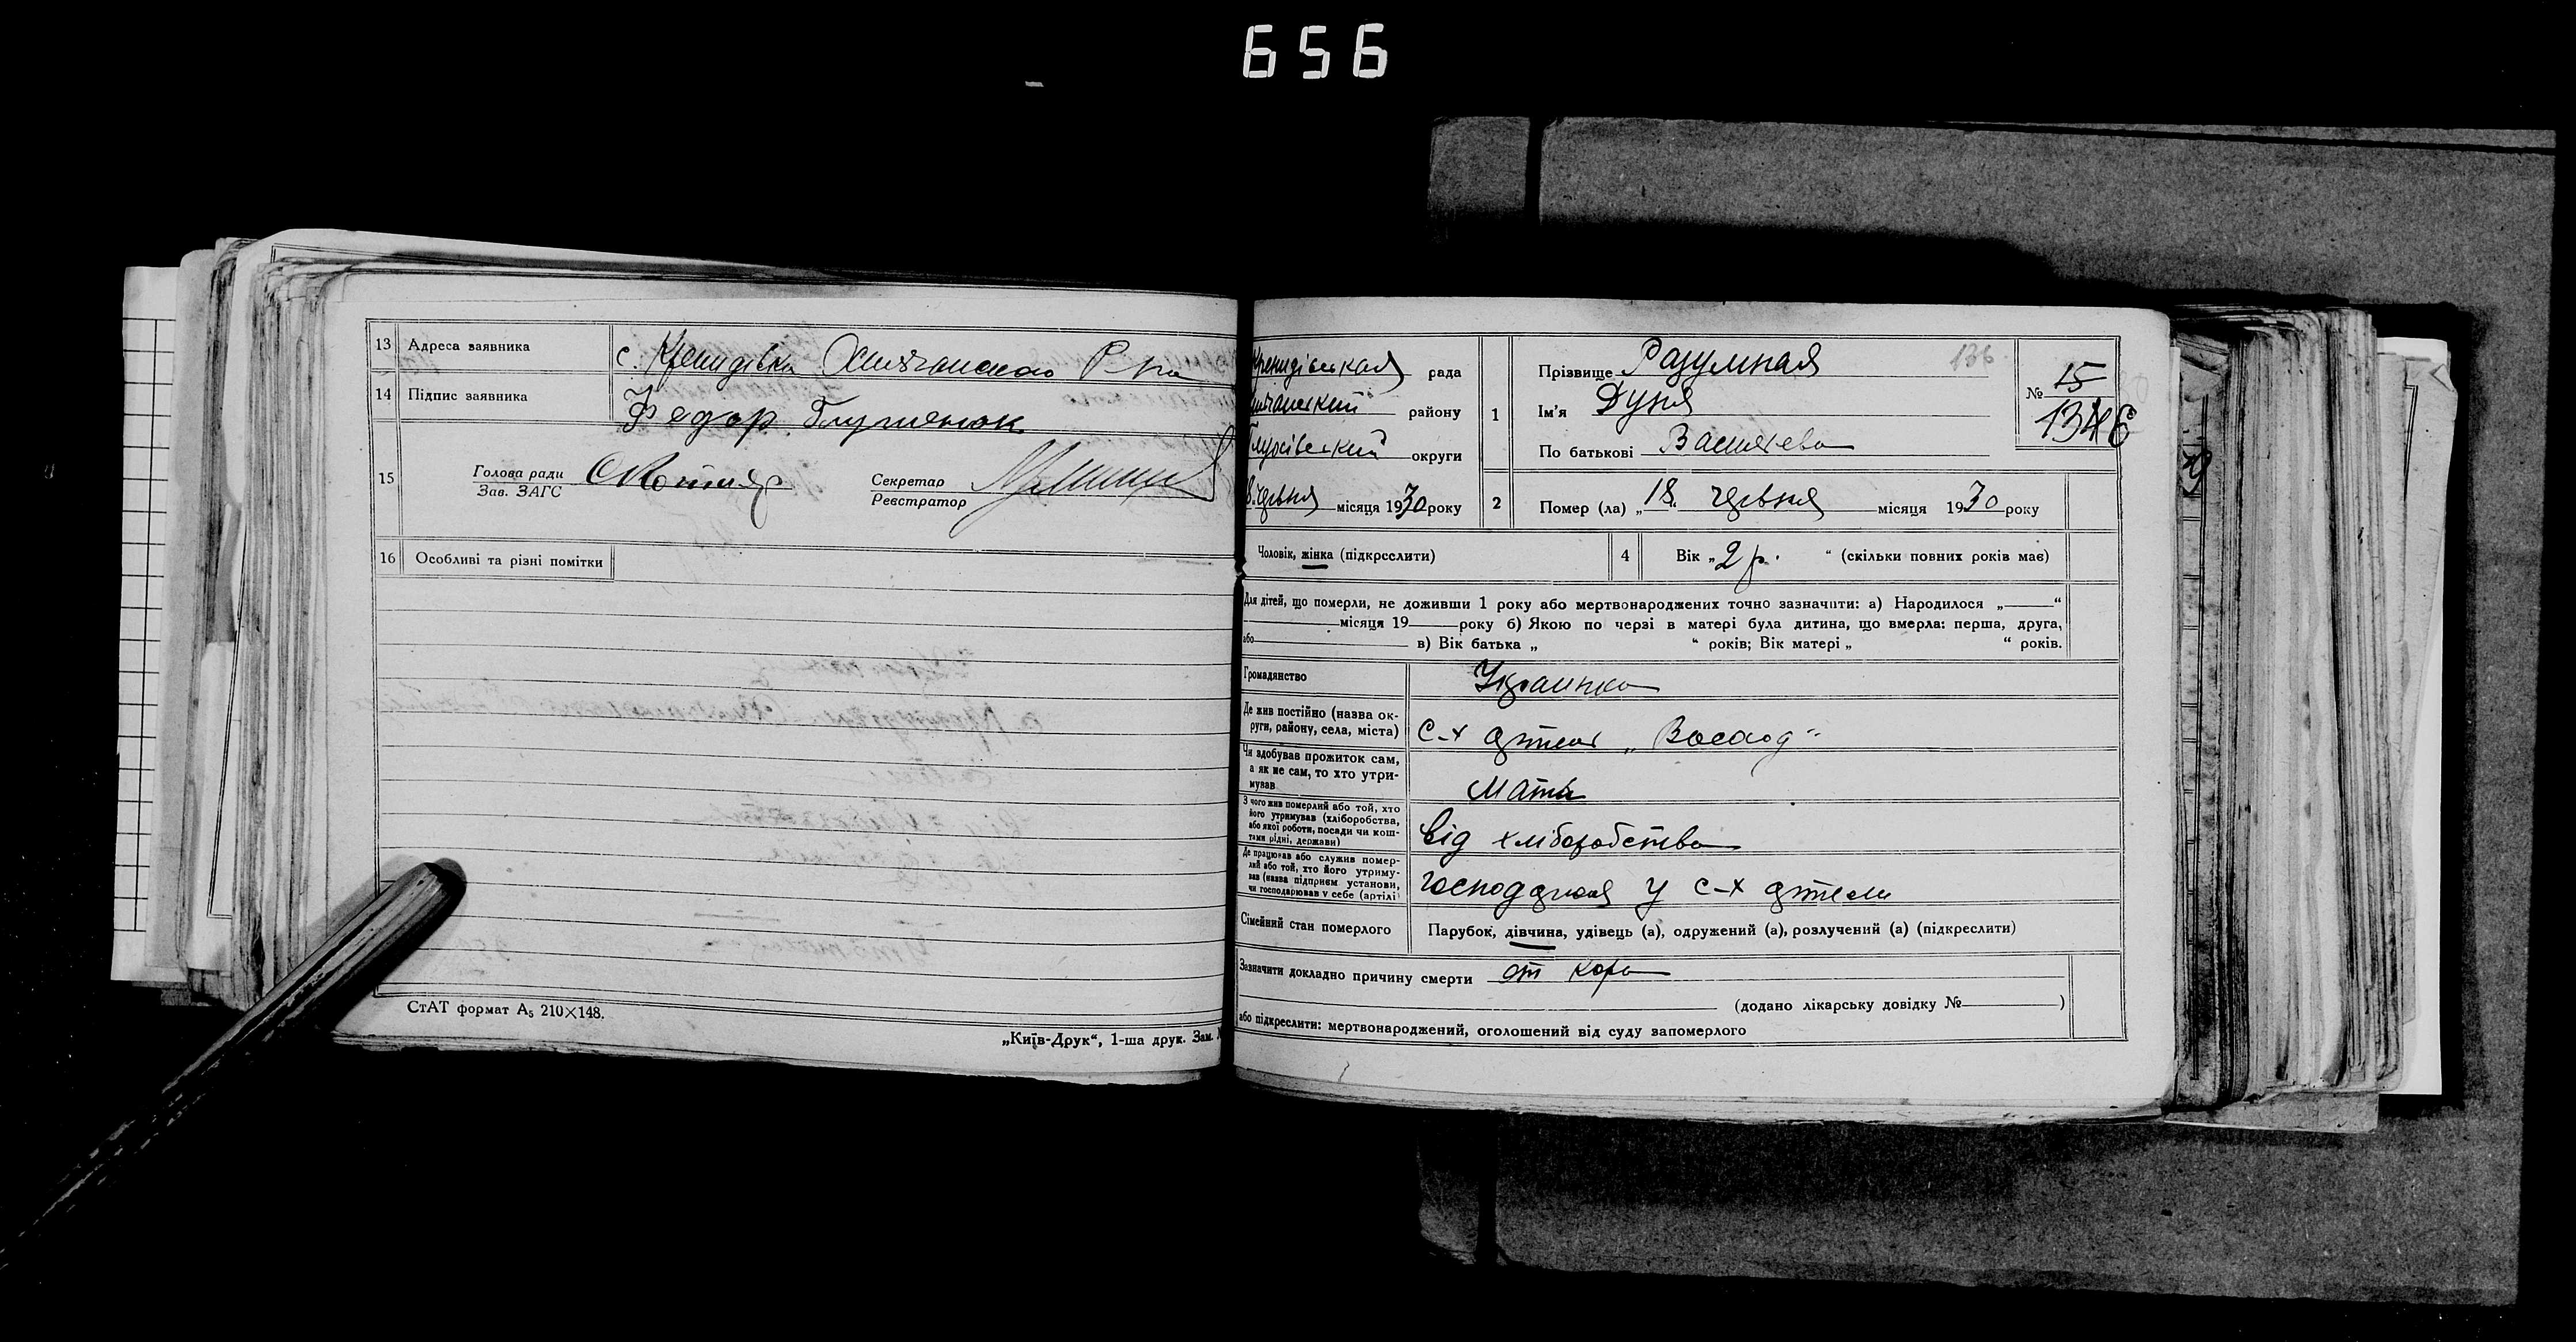 656
13 Адреса заявника с. Кренидівка Хильчанского Р-на
14 Підпис заявника Федор
15 Голова ради Секретар
Зав. ЗАГС Реєстратор
16 Особливі та різні помітки
СтАТ формат А₅ 210×148.
„Київ-Друк“, 1-ша друк. Зам.
рада
району
округи
червня місяця 1930 року
1 Прізвище Разумная 136
Ім'я Дуня
По батькові Васильева
№ 15
134
2 Помер (ла) „18“ червня місяця 1930 року
Чоловік, жінка (підкреслити)
4 Вік „2 р. “ (скільки повних років має)
Для дітей, що померли, не доживши 1 року або мертвонароджених точно зазначити: а) Народилося „ “
місяця 19 року б) Якою по черзі в матері була дитина, що вмерла: перша, друга,
або в) Вік батька „ “ років; Вік матері „ “ років.
Громадянство Украинка
Де жив постійно (назва ок-
руги, району, села, міста) с-х артель „Восход“
Чи здобував прожиток сам,
а як не сам, то хто утри-
мував Мати
З чого жив померлий або той, хто
його утримував (хліборобства,
або якої роботи, посади чи кош-
тами рідні, держави) від хліборобства
Де працював або служив помер-
лий або той, хто його утриму-
вав (назва підприєм. установи,
чи господарював у себе (артілі) у с-х артели
Сімейний стан померлого Парубок, дівчина, удівець (а), одружений (а), розлучений (а) (підкреслити)
Зазначити докладно причину смерти от кора
(додано лікарську довідку № )
або підкреслити: мертвонароджений, оголошений від суду запомерлого